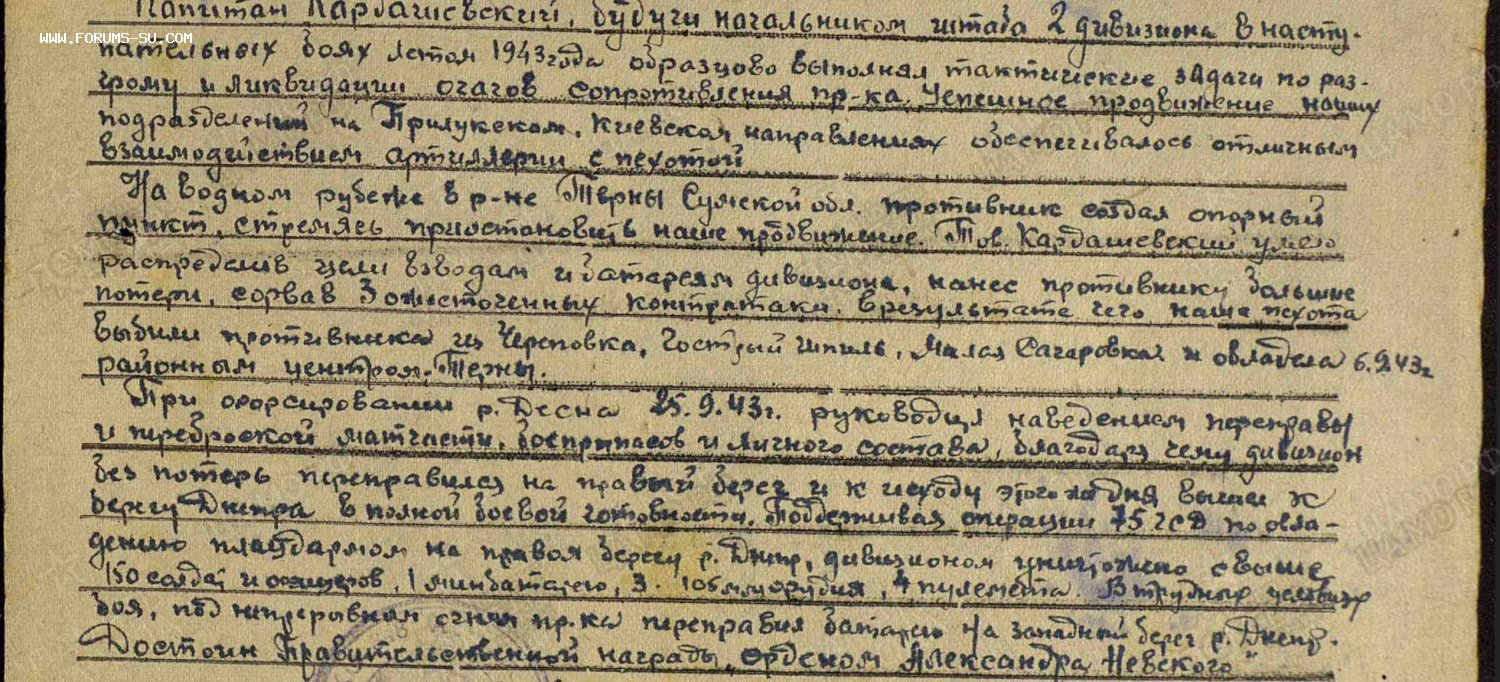 www.forums-su.com
Капитан Кардашевский, будучи начальником штаба 2 дивизиона в насту-
пательных боях летом 1943 года образцово выполнял тактические задачи по раз-
грому и ликвидации очагов сопротивления пр-ка. Успешное продвижение наших
подразделений на Прилукском, Киевском направлениях обеспечивалось отличным
взаимодействием артиллерии с пехотой
На водном рубеже в р-не Терны Сумской обл. противник создал опорный
пункт, стремясь приостановить наше продвижение. Тов. Кардашевский умело
распределив цели взводам и батареям дивизиона, нанес противнику большие
потери, сорвав 3 ожесточенных контратаки. В результате чего наша пехота
выбили противника из Череповка, Гострый Шпиль, Малая Сагаровка и овладела 6.9.43г.
районным центром. Терны.
При форсировании р. Десна 25.9.43г. руководил наведением переправы
и переброской матчасти, боеприпасов и личного состава, благодаря чему дивизион
без потерь переправился на правый берег и к исходу этого же дня вышел к
берегу Днепра в полной боевой готовности. Поддерживая операции 75 гсд по овла-
дению плацдармом на правом берегу р. Днепр, дивизионом уничтожено свыше
150 солдат и офицеров, 1 минбатарею, 3 105 мм орудия, 4 пулемета. В трудных условиях
боя, под непрерывным огнем пр-ка переправил батарею на западный берег р. Днепр.
Достоин Правительственной награды „Орденом Александра Невского"